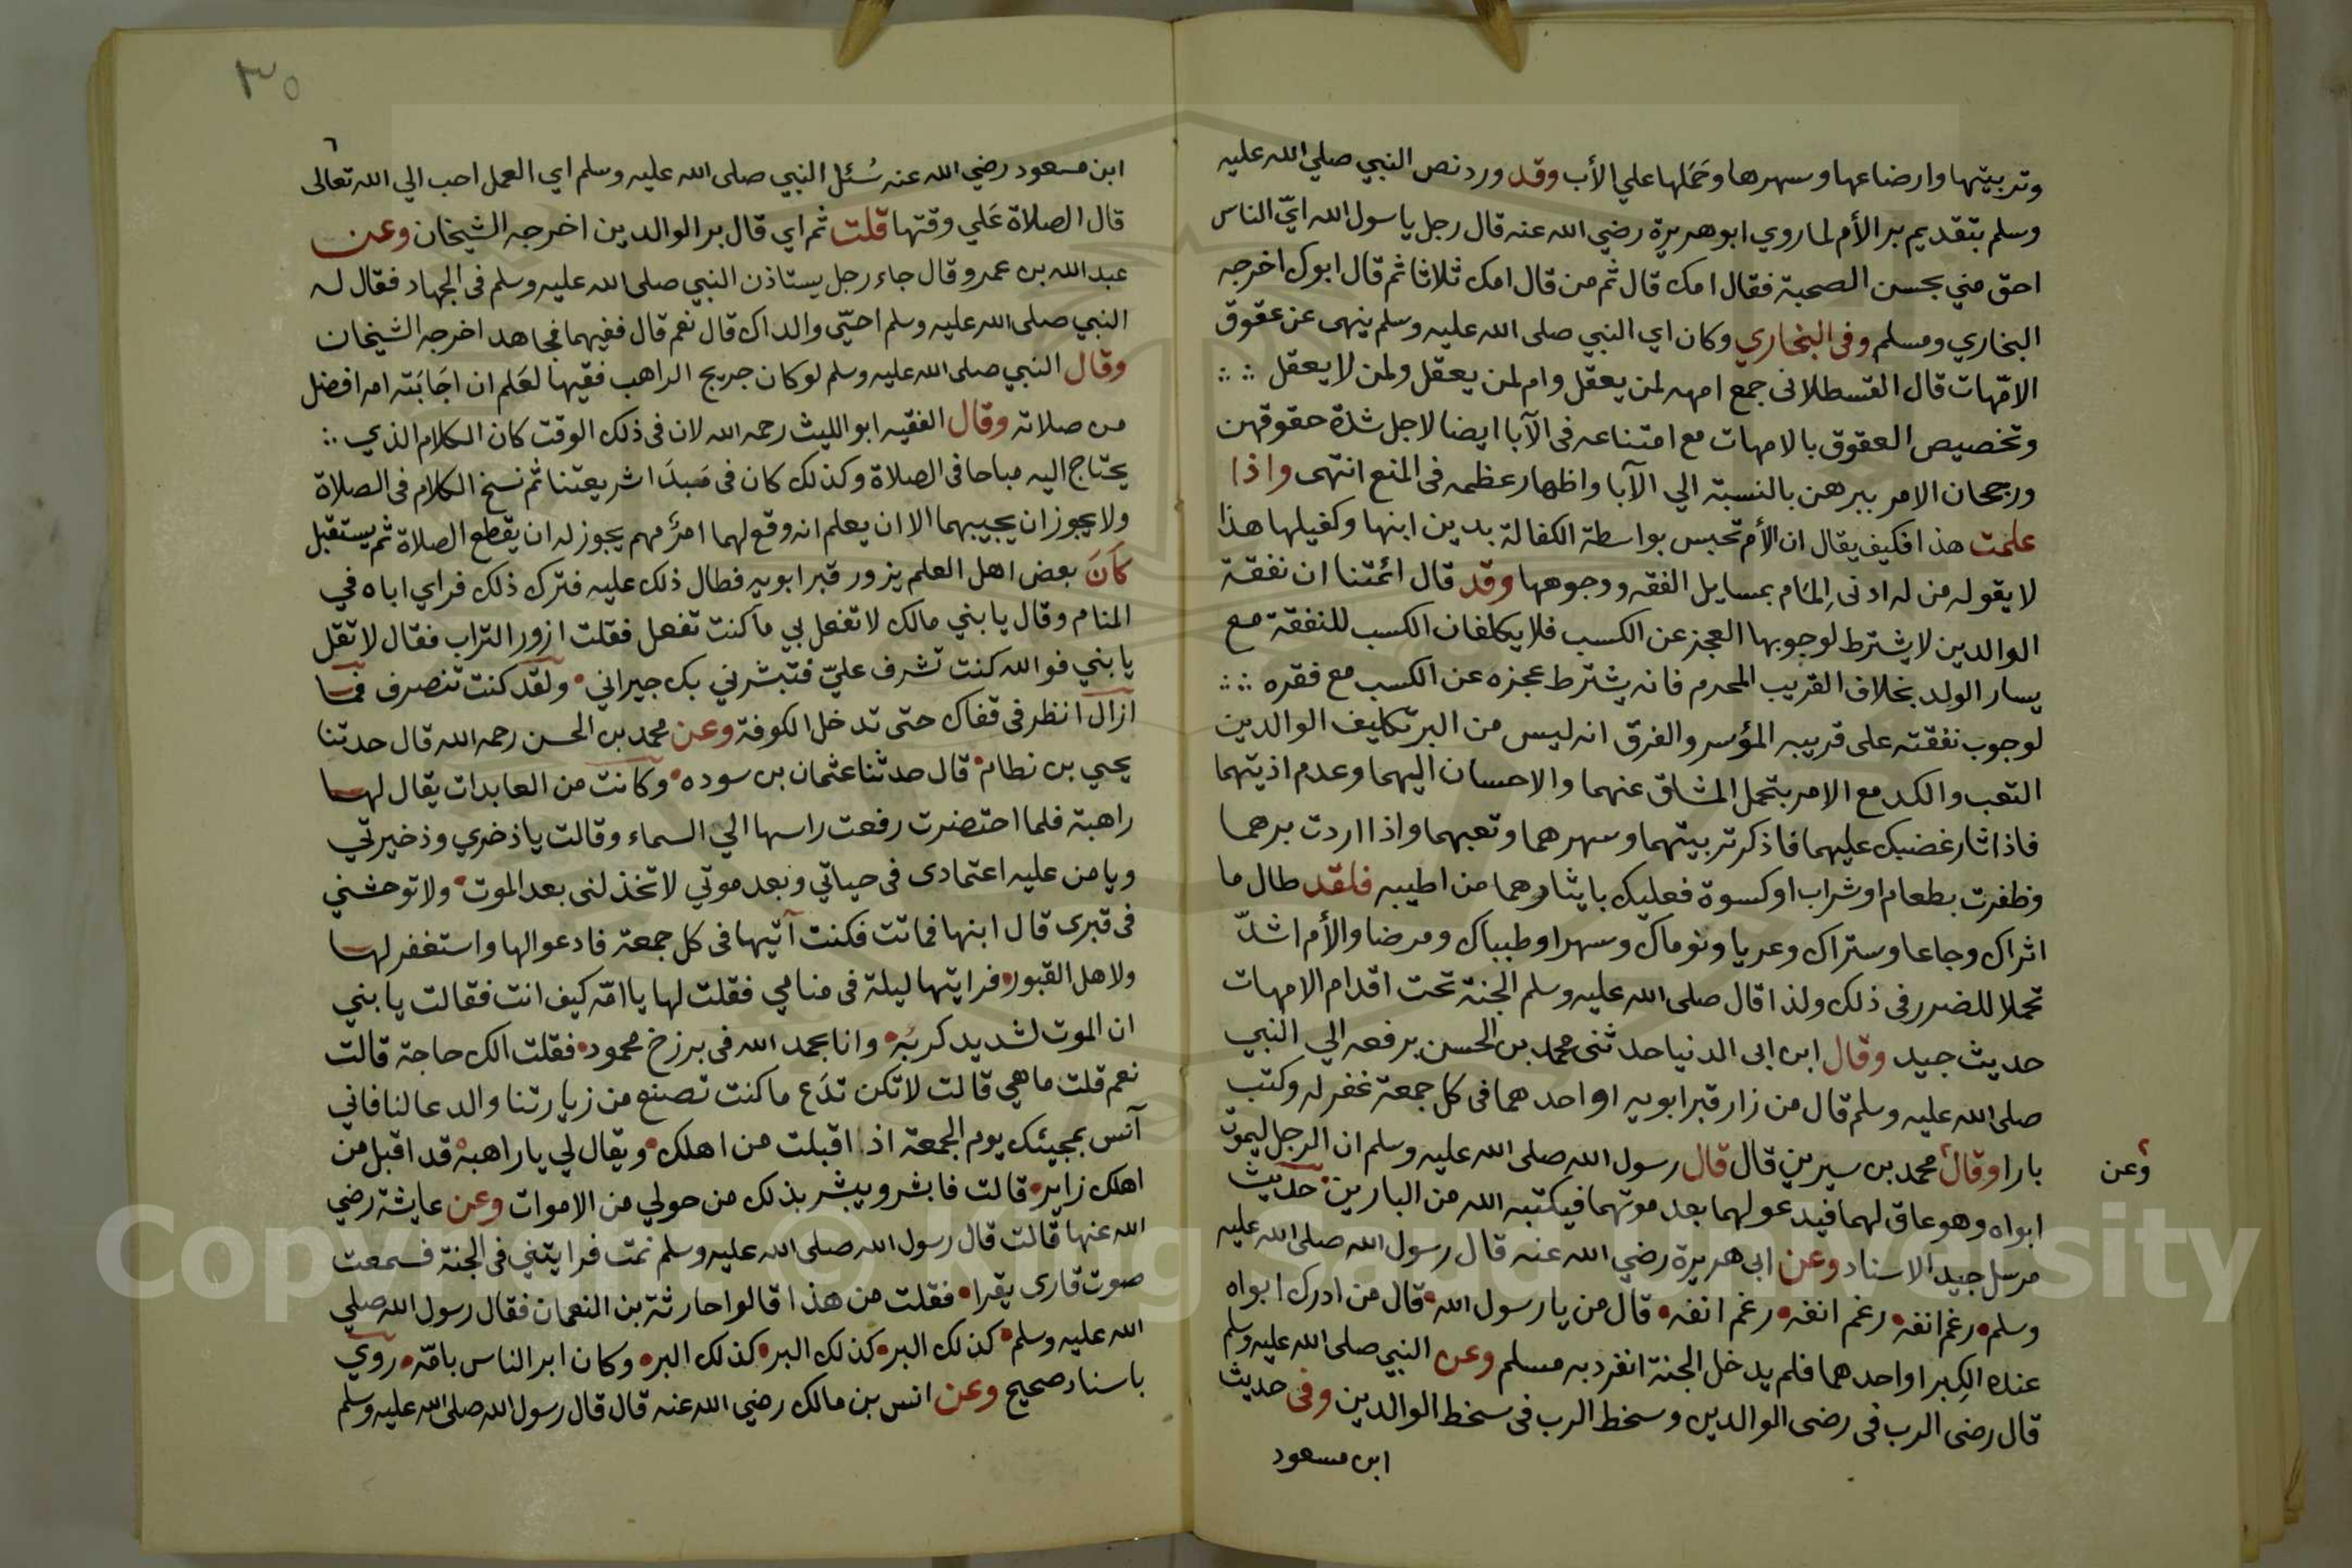 وتربيتها وارضاعها وسهرها وحَمَلها علي الأب وقد ورد نص النبي صلي الله عليه
وسلم بتقديم بر الأم لما روي ابو هريرة رضي الله عنه قال رجل يا سول الله ايّ الناس
احق مني بحسن الصحبة فقال امك قال ثم من قال امك ثلاثا ثم قال ابوك اخرجه
البخاري ومسلم وفى البخاري وكان اي النبي صلى الله عليه وسلم ينهى عن عقوق
الامّهات قال القسطلانى جمع امهه لمن يعقل وام لمن يعقل ولمن لا يعقل
وتخصيص العقوق بالامهات مع امتناعه فى الآبا ايضا لاجل شدة حقوقهن
ورجحان الامر ببرهن بالنسبة الي الآبا واظهار عظمه فى المنع انتهى واذا
علمت هذا فكيف يقال ان الأم تحبس بواسطة الكفالة بدين ابنها وكفيلها هذا
لا يقوله من له ادنى المام بمسايل الفقه ووجوهها وقد قال ائمتنا ان نفقة
الوالدين لا يشترط لوجوبها العجز عن الكسب فلا يكلفان الكسب للنفقة مع
يسار الولد بخلاف القريب المحرم فانه يشترط عجزه عن الكسب مع فقره
لوجوب نفقته على قريبه المؤسر والفرق انه ليس من البر تكليف الوالدين
التعب والكد مع الامر بتحمل المشاق عنهما والاحسان اليهما وعدم اذيتهما
فاذا ثار غضبك عليهما فاذكر تربيتهما وسهرهما وتعبهما واذا اردت برهما
وظفرت بطعام او شراب او كسوة فعليك بايثارهما من اطيبه فلقد طال ما
اثراك وجاعا وستراك وعريا ونوماك وسهرا وطبباك ومرضا والأم اشدّ
تحملا للضرر فى ذلك ولذا قال صلى الله عليه وسلم الجنة تحت اقدام الامهات
حديث جيد وقال ابن ابى الدنيا حدثنى محمد بن الحسن يرفعه الي النبي
صلى الله عليه وسلم قال من زار قبر ابويه او احدهما فى كل جمعة غفر له وكتب
بارا وقال محمد بن سيرين قال قال رسول الله صلى الله عليه وسلم ان الرجل ليموت
وعن
ابواه وهو عاق لهما فيدعو لهما بعد موتهما فيكتبه الله من البارين حديث
مرسل جيد الاسناد وعن ابى هريرة رضي الله عنه قال رسول الله صلى الله عليه
وسلم رغم انفه رغم انفه رغم انفه قال من يا رسول الله قال من ادرك ابواه
عنده الكِبر او احدهما فلم يدخل الجنة انفرد به مسلم وعن النبي صلى الله عليه وسلم
قال رضى الرب فى رضى الوالدين وسخط الرب فى سخط الوالدين وفى حديث
ابن مسعود
٣٥
٦
ابن مسعود رضي الله عنه سُئل النبي صلى الله عليه وسلم اي العمل احب الي الله تعالى
قال الصلاة عَلي وقتها قلت ثم اي قال بر الوالدين اخرجه الشيخان وعن
عبد الله بن عمرو قال جاء رجل يستاذن النبي صلى الله عليه وسلم فى الجهاد فقال له
النبي صلى الله عليه وسلم احيّى والداك قال نعم قال ففيهما فجاهد اخرجه الشيخان
وقال النبي صلى الله عليه وسلم لو كان جريج الراهب فقيها لعَلم ان اجَابَته امه افضل
من صلاته وقال الفقيه ابو الليث رحمه الله لان فى ذلك الوقت كان الكلام الذي
يحتاج اليه مباحا فى الصلاة وكذلك كان فى مَبدَا شريعتنا ثم نسخ الكلام فى الصلاة
ولا يجوز ان يجيبهما الا ان يعلم انه وقع لهما امرٌ مهم يجوز له ان يقطع الصلاة ثم يستقبل
كَانَ بعض اهل العلم يزور قبر ابويه فطال ذلك عليه فترك ذلك فراي اباه في
المنام وقال يا بني مالك لا تفعل بي ما كنت تفعل فقلت ازور التراب فقال لا تقل
يا بني فو الله كنت تشرف عليّ فتبشرني بك جيراني ولقد كنت تنصرف فما
ازال انظر فى قفاك حتى تدخل الكوفة وعن محمد بن الحسن رحمه الله قال حدثنا
يحيي بن نطام قال حدثنا عثمان بن سوده وكانت من العابدات يقال لها
راهبة فلما احتضرت رفعت راسها الي السماء وقالت يا ذخري وذخيرتي
ويا من عليه اعتمادى فى حياتي وبعد موتي لا تخذلنى بعد الموت ولا توحشني
فى قبرى قال ابنها فماتت فكنت آتيها فى كل جمعة فادعوا لها واستغفر لها
ولاهل القبور فرايتها ليلة فى منامي فقلت لها يا امّه كيف انت فقالت يا بني
ان الموت لشديد كربُه وانا بحمد الله فى برزخ محمود فقلت الك حاجة قالت
نعم قلت ما هي قالت لا تكن تدَع ما كنت تصنع من زيارتنا والدعا لنا فاني
آنس بمجيئك يوم الجمعة اذا اقبلت من اهلك ويقال لي يا راهبة قد اقبل من
اهلك زاير قالت فابشر ويبشر بذلك من حولي من الاموات وعن عايشة رضي
الله عنها قالت قال رسول الله صلى الله عليه وسلم نمت فرايتني فى الجنة فسمعت
صوت قارى يقرا فقلت من هذا قالوا حارثة بن النعمان فقال رسول الله صلي
الله عليه وسلم كذلك البر كذلك البر كذلك البر وكان ابر الناس بامّه روي
باسناد صحيح وعن انس بن مالك رضي الله عنه قال قال رسول الله صلى الله عليه وسلم
Copyright © King Saud University